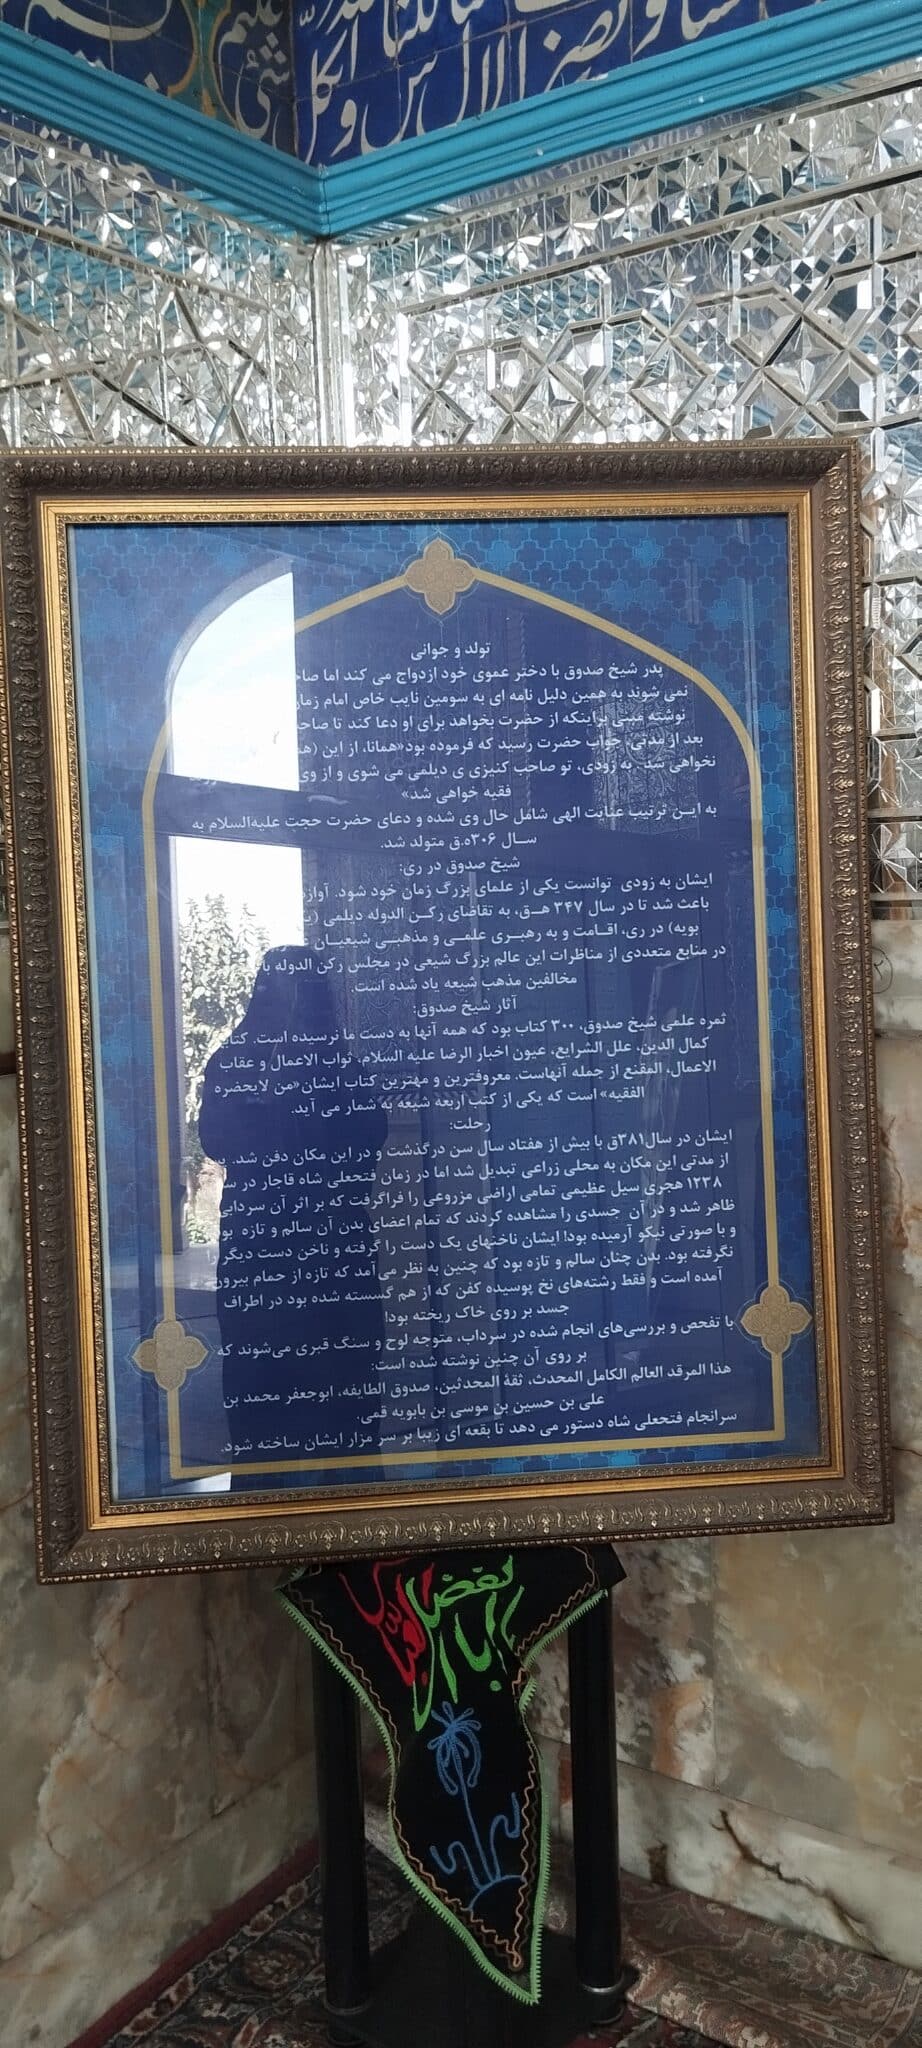 شیئ علیم
تولد و جوانی
پدر شیخ صدوق با دختر عموی خود ازدواج می کند اما
نمی شوند به همین دلیل نامه ای به سومین نایب خاص امام زمان
نوشته مبنی براینکه از حضرت بخواهد برای او دعا کند تا
بعد از مدتی، جواب حضرت رسید که فرموده بود«همانا، از این
نخواهی شد. به زودی، تو صاحب کنیزی ی دیلمی می شوی و از وی
فقیه خواهی شد»
به ایـن ترتیب عنایت الهی شامل حال وی شده و دعای حضرت حجت علیه‌السلام به
سـال ۳۰۶ه.ق متولد شد.
شیخ صدوق در ری:
ایشان به زودی توانست یکی از علمای بزرگ زمان خود شود.
باعث شد تا در سال ۳۴۷ هـ‌ق، به تقاضای رکـن الدوله دیلمی
بویه) در ری، اقـامت و به رهبـری علمـی و مذهبـی شیعیـان
در منابع متعددی از مناظرات این عالم بزرگ شیعی در مجلس رکن الدوله با
مخالفین مذهب شیعه یاد شده است.
آثار شیخ صدوق:
ثمره علمی شیخ صدوق، ۳۰۰ کتاب بود که همه آنها به دست ما نرسیده است.
کمال الدین، علل الشرایع، عیون اخبار الرضا علیه السلام، ثواب الاعمال و عقاب
الاعمال، المقنع از جمله آنهاست. معروفترین و مهترین کتاب ایشان«من لایحضره
الفقیه» است که یکی از کتب اربعه شیعه به شمار می آید.
رحلت:
ایشان در سال۳۸۱ق با بیش از هفتاد سال سن درگذشت و در این مکان دفن شد.
از مدتی این مکان به محلی زراعی تبدیل شد اما در زمان فتحعلی شاه قاجار در
۱۲۳۸ هجری سیل عظیمی تمامی اراضی مزروعی را فراگرفت که بر اثر آن سردابی
ظاهر شد و در آن جسدی را مشاهده کردند که تمام اعضای بدن آن سالم و تازه
و با صورتی نیکو آرمیده بود! ایشان ناخنهای یک دست را گرفته و ناخن دست دیگر
نگرفته بود. بدن چنان سالم و تازه بود که چنین به نظر می‌آمد که تازه از حمام بیرون
آمده است و فقط رشته‌های نخ پوسیده کفن که از هم گسسته شده بود در اطراف
جسد بر روی خاک ریخته بود!
با تفحص و بررسی‌های انجام شده در سرداب، متوجه لوح و سنگ قبری می‌شوند که
بر روی آن چنین نوشته شده است:
هذا المرقد العالم الکامل المحدث، ثقة المحدثین، صدوق الطایفه، ابوجعفر محمد بن
علی بن حسین بن موسی بن بابویه قمی.
سرانجام فتحعلی شاه دستور می دهد تا بقعه ای زیبا بر سر مزار ایشان ساخته شود.
یا اباالفضل العباس